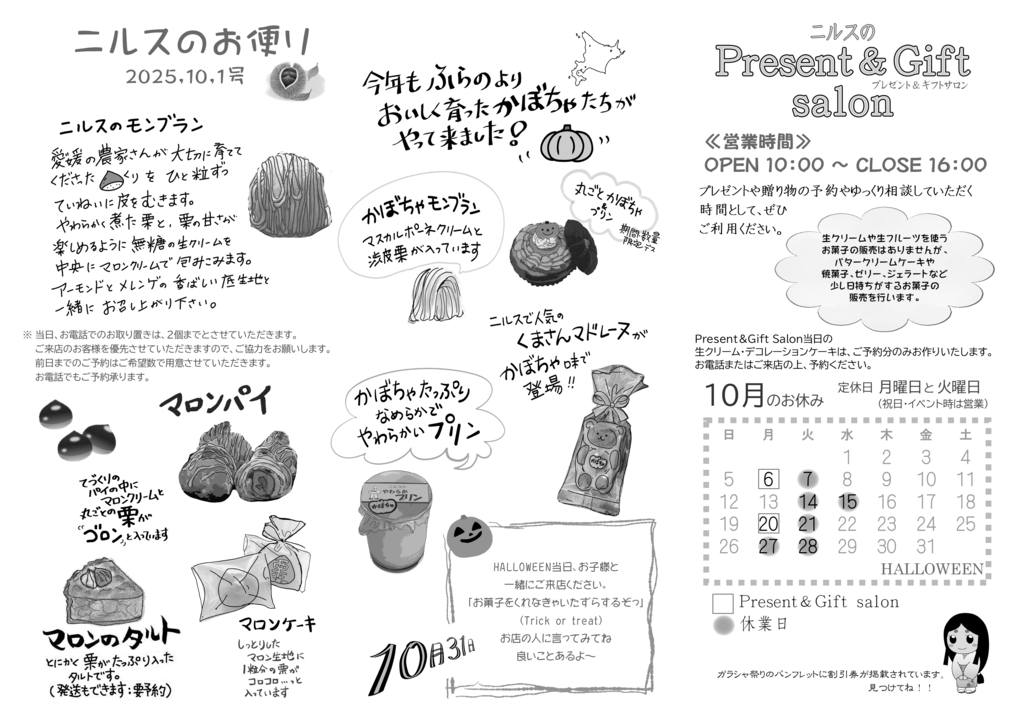 ニルスのお便り
2025,10,1号
ニルスのモンブラン
愛媛の農家さんが大切に育てて
くださった くりを ひと粒ずつ
ていねいに皮をむきます。
やわらかく煮た栗と、栗の甘さが
楽しめるように無糖の生クリームを
中央にマロンクリームで包みこみます。
アーモンドとメレンゲの香ばしい底生地と
一緒にお召し上がり下さい。
※ 当日、お電話でのお取り置きは、2個までとさせていただきます。
ご来店のお客様を優先させていただきますので、ご協力をお願いします。
前日までのご予約はご希望数で用意させていただきます。
お電話でもご予約承ります。
マロンパイ
てづくりの
パイの中に
マロンクリームと
丸ごとの栗が
"ゴロン"と入っています
マロンのタルト
とにかく栗がたっぷり入った
タルトです。
(発送もできます:要予約)
マロンケーキ
しっとりした
マロン生地に
1粒分の栗が
コロコロ…っと
入っています
今年もふらのより
おいしく育ったかぼちゃたちが
やって来ました!
かぼちゃモンブラン
マスカルポーネクリームと
渋皮栗が入っています
丸ごとかぼちゃ
&
プリン
期間・数量
限定デス
ニルスで人気の
くまさんマドレーヌが
かぼちゃ味で
登場!!
かぼちゃ
かぼちゃたっぷり
なめらかで
やわらかいプリン
やわらか
プリン
かぼちゃ
HALLOWEEN当日、お子様と
一緒にご来店ください。
「お菓子をくれなきゃいたずらするぞっ」
(Trick or treat)
お店の人に言ってみてね
良いことあるよ〜
10月31日
ニルスの
Present & Gift
プレゼント&ギフトサロン
salon
≪営業時間≫
OPEN 10:00 〜 CLOSE 16:00
プレゼントや贈り物の予約やゆっくり相談していただく
時間として、ぜひ
ご利用ください。
生クリームや生フルーツを使う
お菓子の販売はありませんが、
バタークリームケーキや
焼菓子、ゼリー、ジェラートなど
少し日持ちがするお菓子の
販売を行います。
Present&Gift Salon当日の
生クリーム・デコレーションケーキは、ご予約分のみお作りいたします。
お電話またはご来店の上、予約ください。
10月のお休み
定休日 月曜日と火曜日
(祝日・イベント時は営業)
日 月 火 水 木 金 土
1 2 3 4
5 6 7 8 9 10 11
12 13 14 15 16 17 18
19 20 21 22 23 24 25
26 27 28 29 30 31
HALLOWEEN
Present&Gift salon
休業日
ガラシャ祭りのパンフレットに割引券が掲載されています。
見つけてね!!